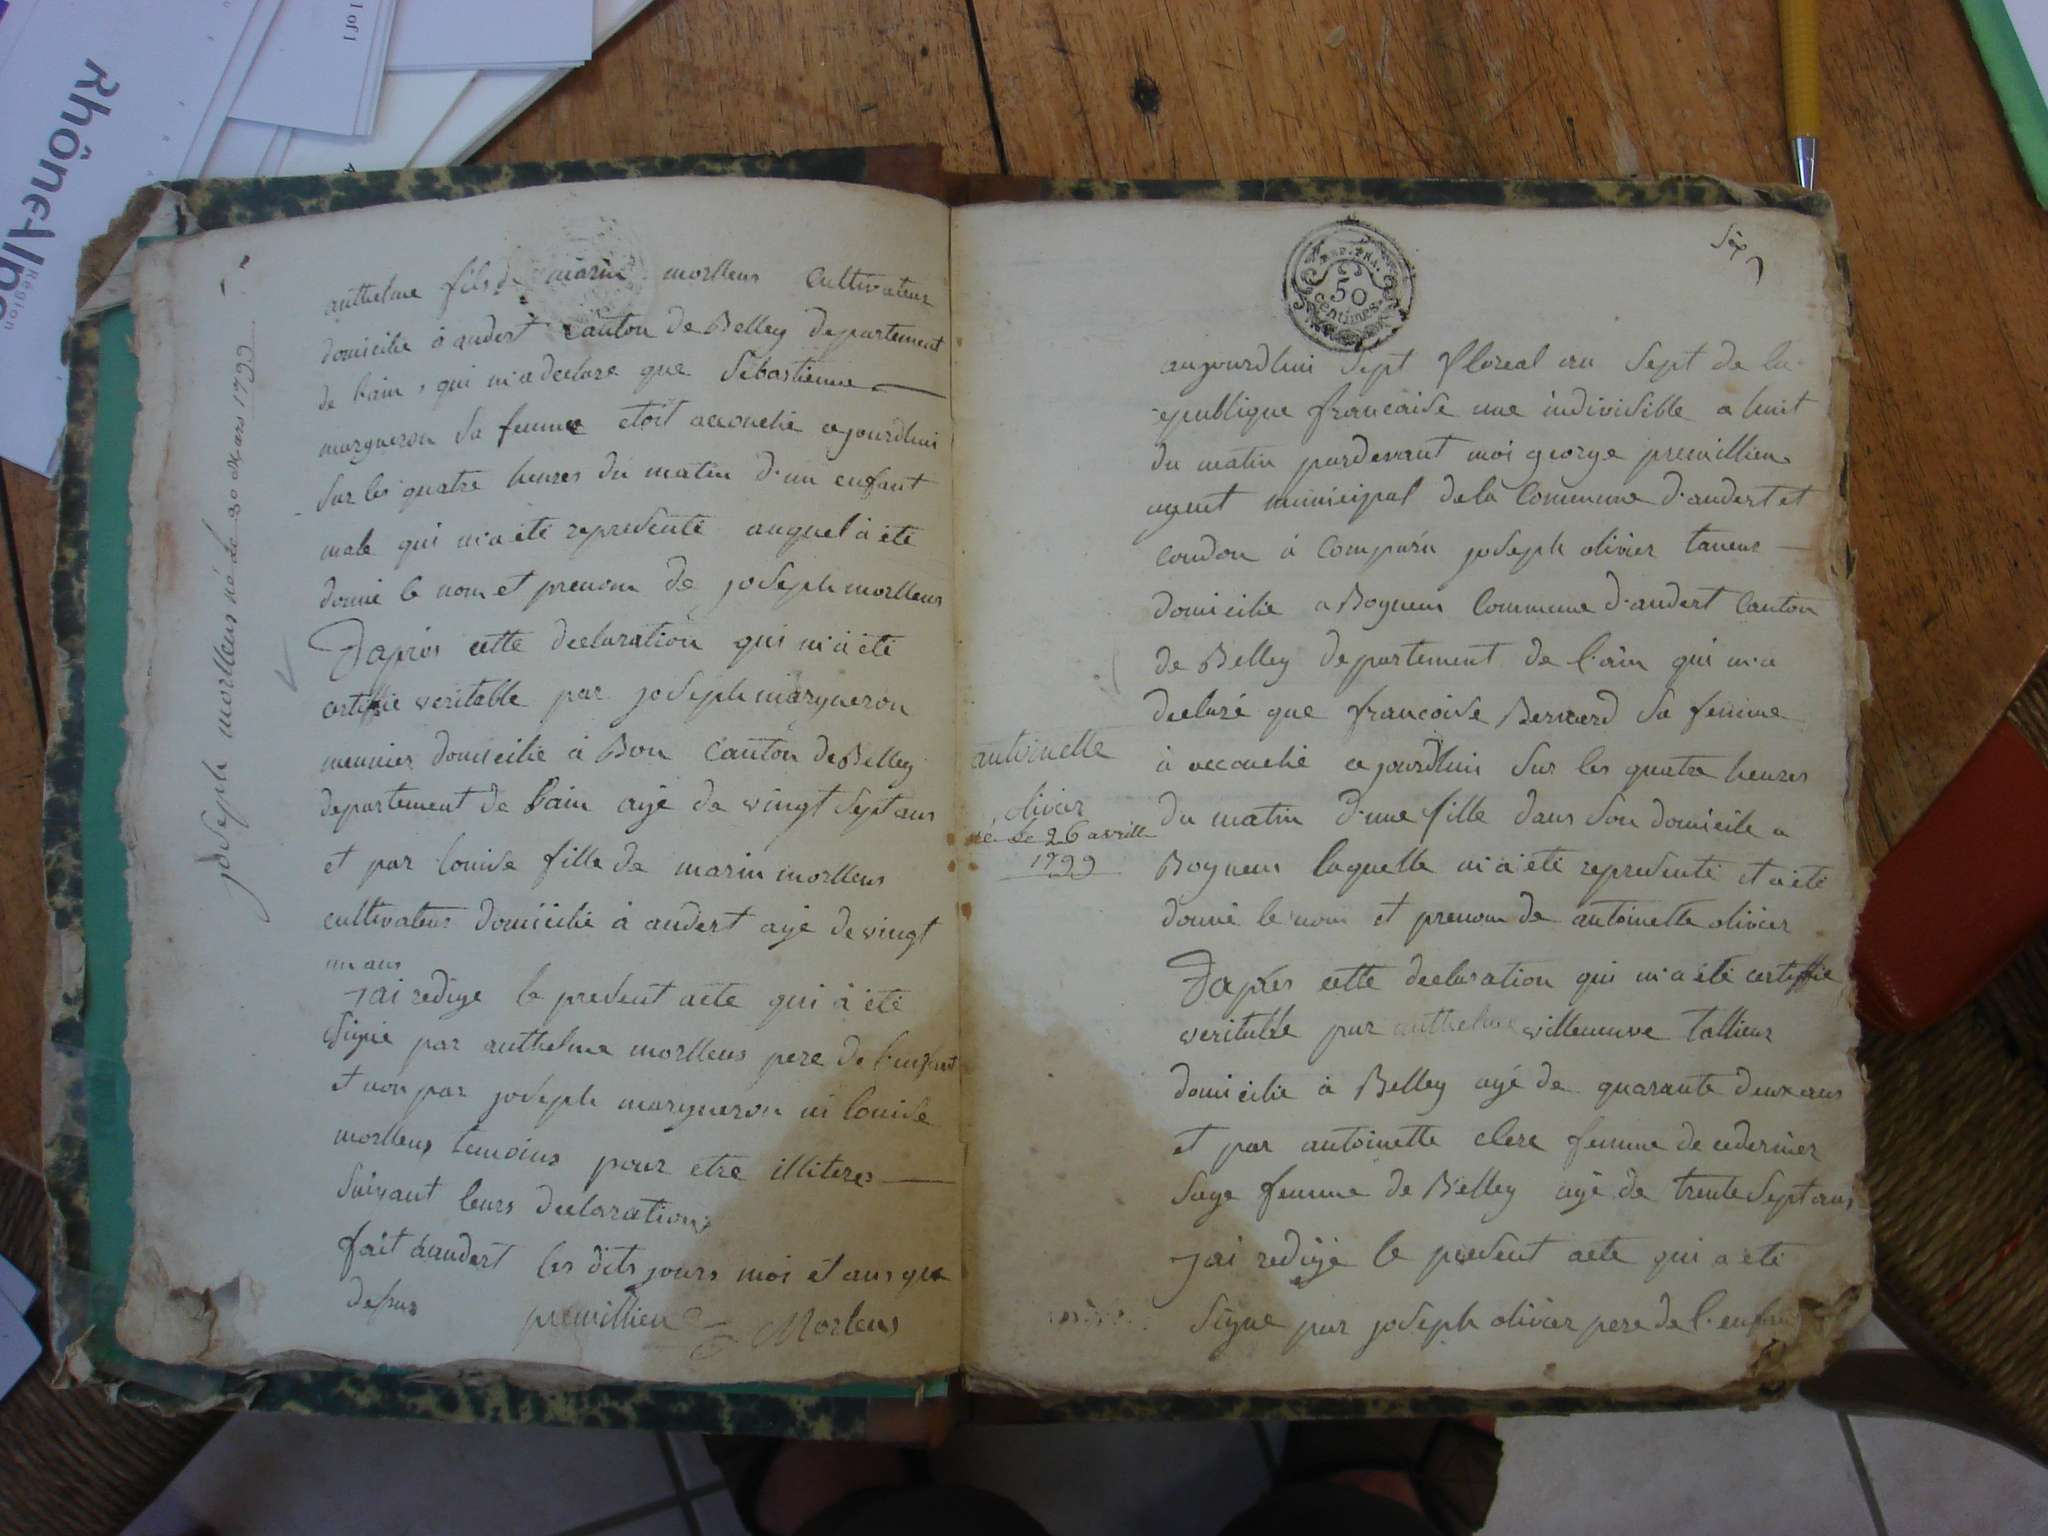 Rhône-Alpes
Région
1 of 1
joseph morlleus né le 30 mars 1799
anthelme fils de marin morlleus cultivateur
domicilie à andert canton de Belley departement
de lain, qui m'a declare que Sebastienne
margueron sa femme etoit accouchée ajourdhui
sur les quatre heures du matin d'un enfant
male qui m'a été representé auquel à été
donné le nom et prenom de joseph morlleus
Dapres cette declaration qui m'à été
certiffié veritable par joseph margueron
meunier domicilié à Bon canton de Belley
departement de lain agé de vingt sept ans
et par louise fille de marin morlleus
cultivateur domicilié à andert agé de vingt
un ans
Jai redigé le present acte qui à été
signé par anthelme morlleus pere de l'enfant
et non par joseph margueron ni louise
morlleus temoins pour etre illiteres
suivant leurs declarations
fait à andert les dits jours mois et ans que
dessus premillieu Morleus
six
REP. FRA.
50
centimes
aujourdhui sept floreal an sept de la
republique francaise une indivisible a huit
du matin pardevant moi george premillieu
agent municipal de la commune d'andert et
condon à comparu joseph olivier taneur
domicilié a Bogneus commune d'andert canton
de Belley departement de l'ain qui m'a
declaré que francoise Bernard sa femme
à accouché ajourdhui sur les quatre heures
du matin d'une fille dans son domicile a
Bogneus laquelle m'a été representé et a été
donné le nom et prenom de antoinette olivier
Dapres cette declaration qui m'a été certiffié
veritable par anthelme villeneuve tallieur
domicilié à Belley agé de quarante deux ans
et par antoinette clerc femme de cedernier
sage femme de Belley agé de trente sept ans
Jai redigé le present acte qui a été
signé par joseph olivier pere de l'enfant
antoinette
olivier
né le 26 avrill
1799